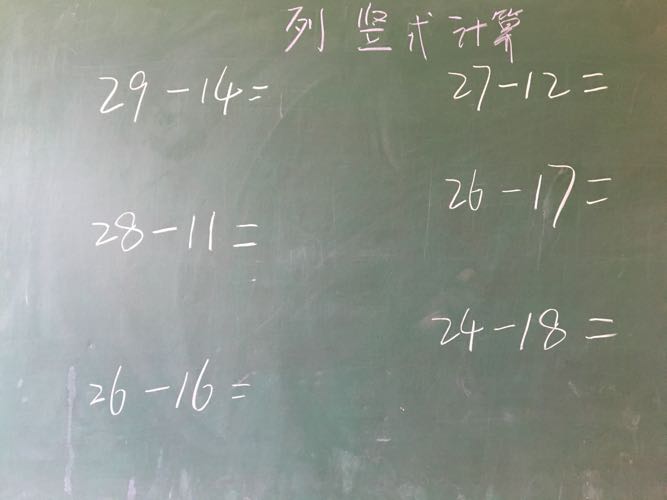 列竖式计算
29-14=
27-12=
28-11=
26-17=
26-16=
24-18=